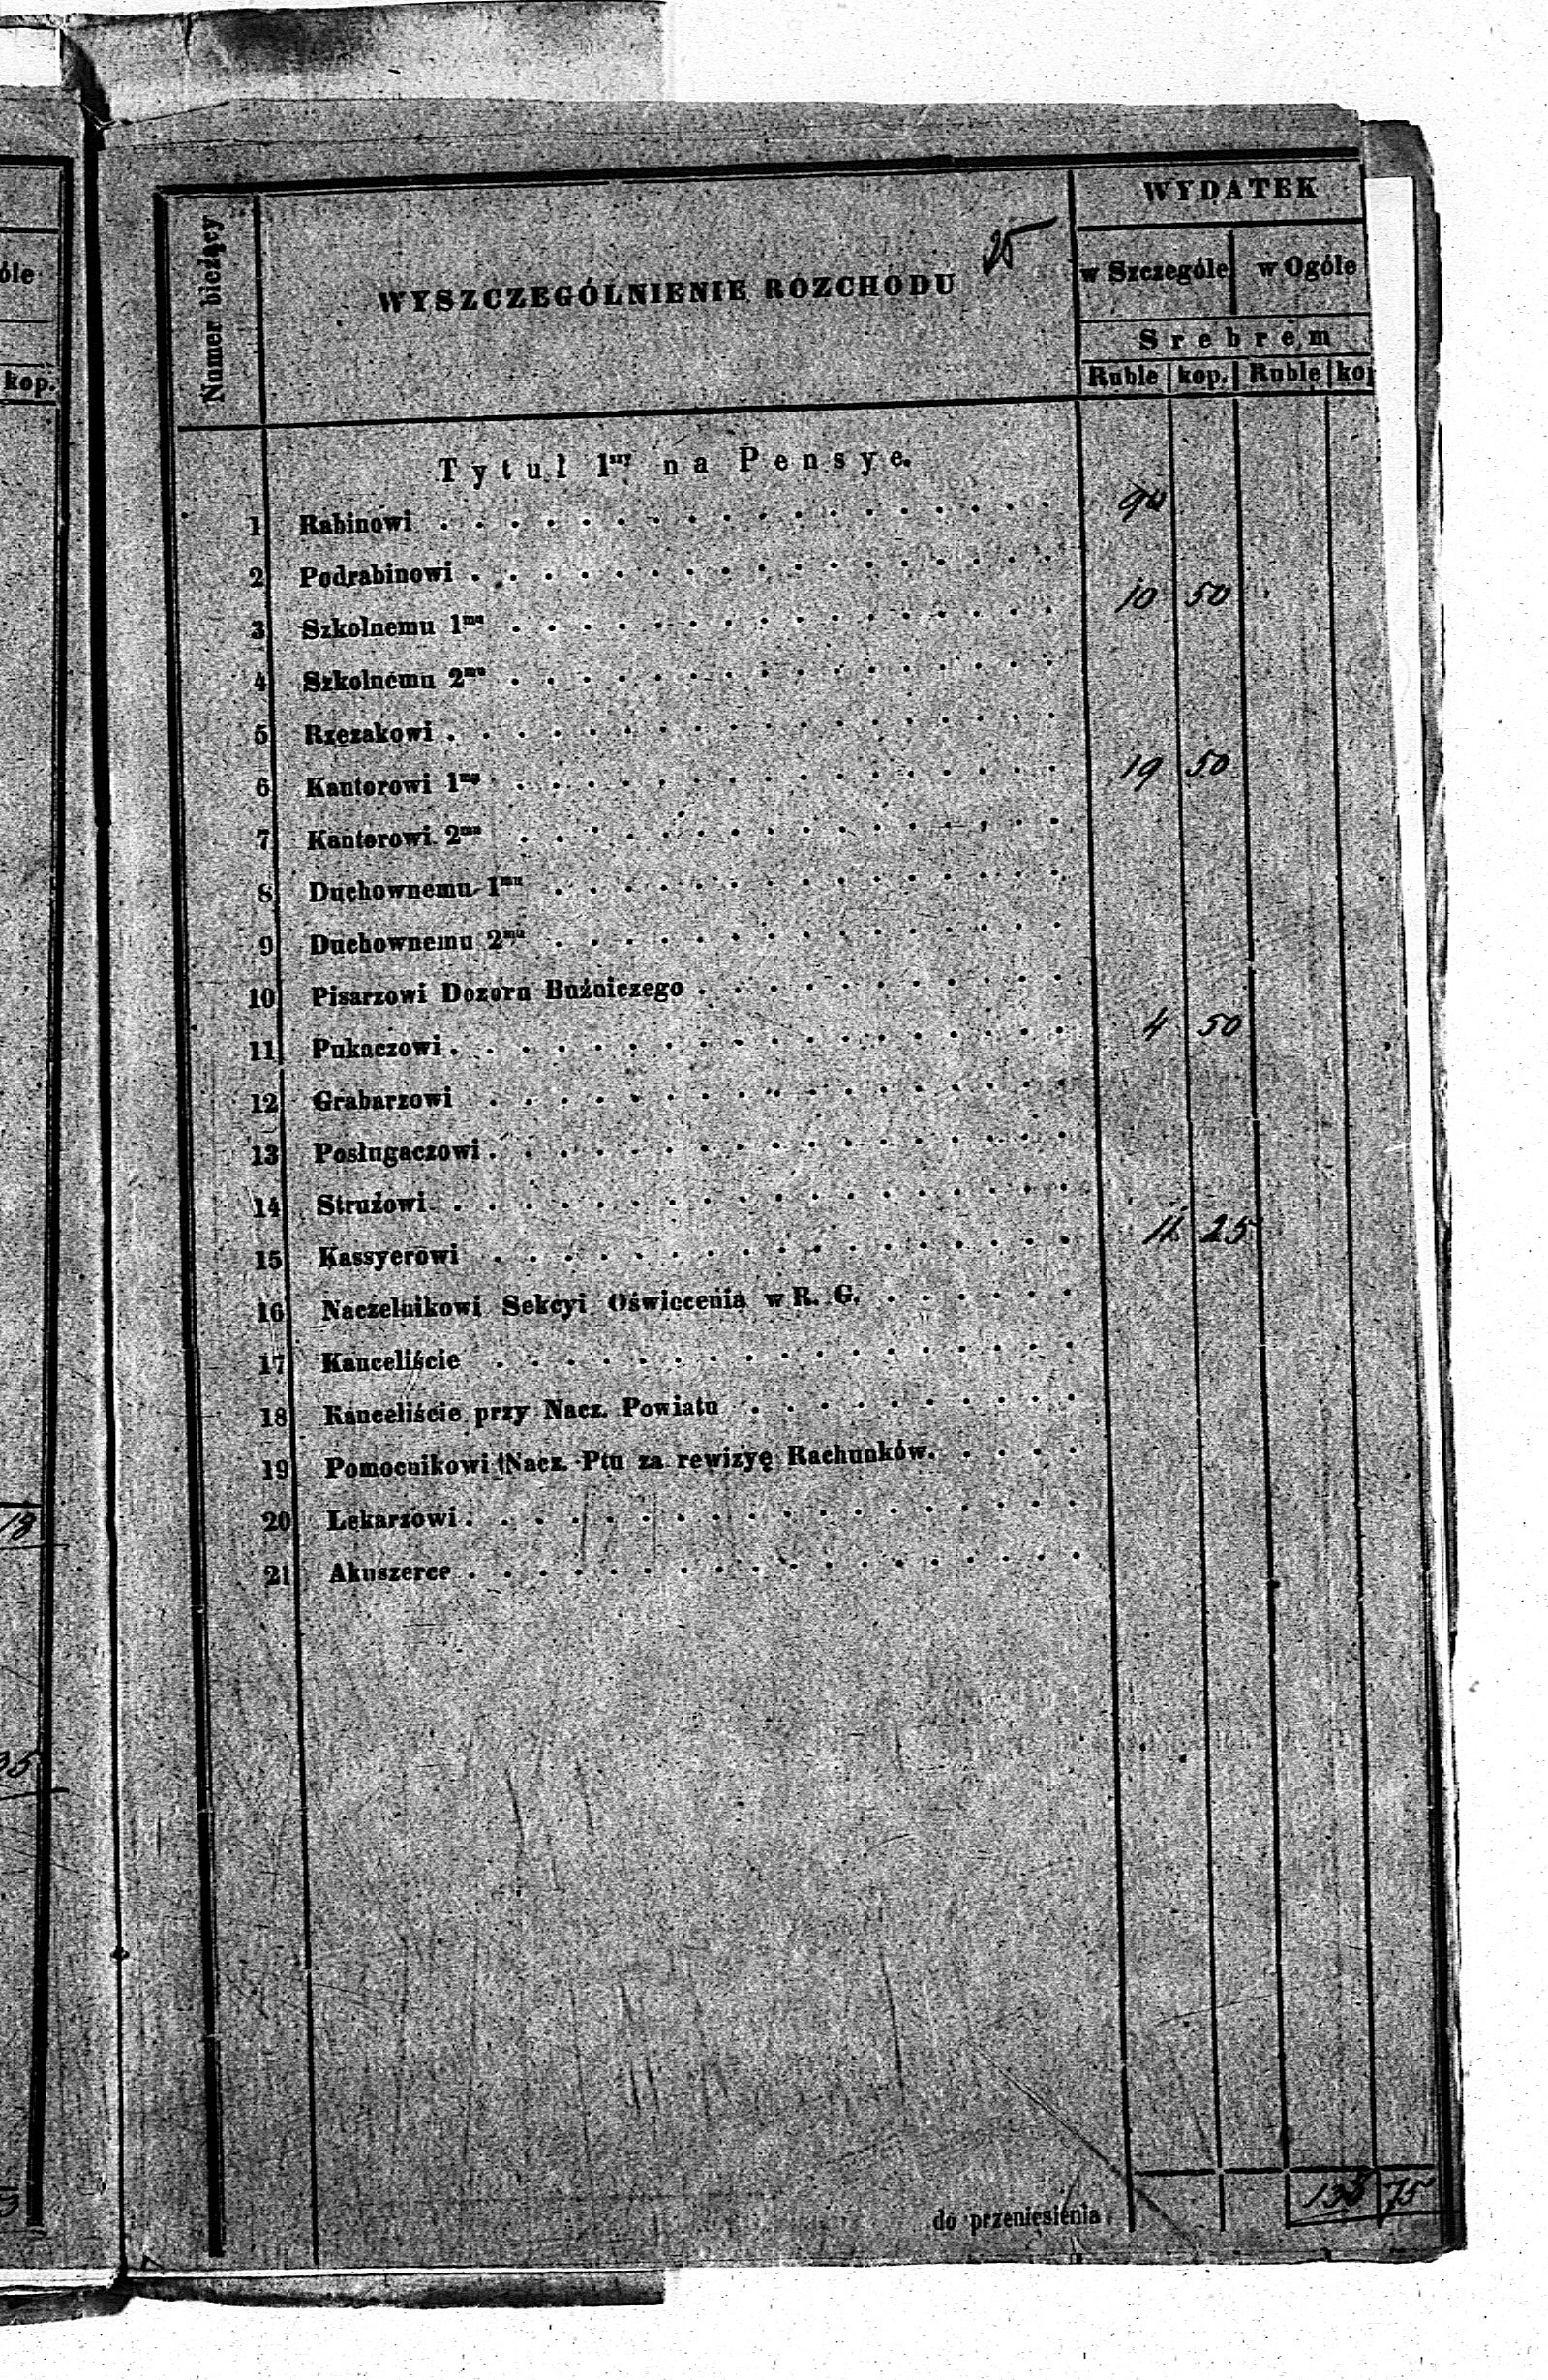 óle
kop.
18
35
Numer bieżący
WYSZCZEGÓLNIENIE ROZCHODU
25
WYDATEK
w Szczególe w Ogóle
Srebrem
Ruble kop. Ruble ko
Tytuł 1ny na Pensye.
1 Rabinowi . . . . . . . . . . . . . . . . . . 90
2 Podrabinowi . . . . . . . . . . . . . . . . .
3 Szkolnemu 1mu . . . . . . . . . . . . . . . . 10 50
4 Szkolnemu 2mu . . . . . . . . . . . . . . . .
5 Rzezakowi . . . . . . . . . . . . . . . . . .
6 Kantorowi 1mu . . . . . . . . . . . . . . . . 19 50
7 Kantorowi 2mu . . . . . . . . . . . . . . . .
8 Duchownemu 1mu . . . . . . . . . . . . . . .
9 Duchownemu 2mu . . . . . . . . . . . . . . .
10 Pisarzowi Dozoru Bużniczego . . . . . . . . . . .
11 Pukaczowi . . . . . . . . . . . . . . . . . . 4 50
12 Grabarzowi . . . . . . . . . . . . . . . . .
13 Posługaczowi . . . . . . . . . . . . . . . . .
14 Strużowi . . . . . . . . . . . . . . . . . .
15 Kassyerowi . . . . . . . . . . . . . . . . . 11 25
16 Naczelnikowi Sekcyi Oświecenia w R. G. . . . . . .
17 Kanceliście . . . . . . . . . . . . . . . . .
18 Kanceliście przy Nacz. Powiatu . . . . . . . . . .
19 Pomocnikowi Nacz. Ptu za rewizyę Rachunków. . . . .
20 Lekarzowi . . . . . . . . . . . . . . . . . .
21 Akuszerce . . . . . . . . . . . . . . . . . .
do przeniesienia 135 75